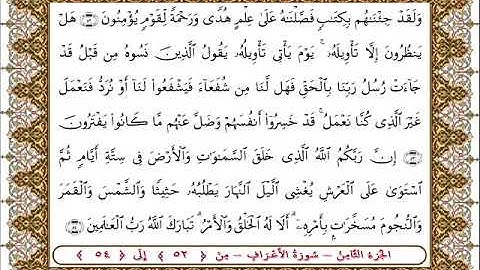 وَلَقَدْ جِئْنَٰهُم بِكِتَٰبٍ فَصَّلْنَٰهُ عَلَىٰ عِلْمٍ هُدًى وَرَحْمَةً لِّقَوْمٍ يُؤْمِنُونَ ۝٥٢ هَلْ
يَنظُرُونَ إِلَّا تَأْوِيلَهُۥ ۚ يَوْمَ يَأْتِى تَأْوِيلُهُۥ يَقُولُ ٱلَّذِينَ نَسُوهُ مِن قَبْلُ قَدْ
جَآءَتْ رُسُلُ رَبِّنَا بِٱلْحَقِّ فَهَل لَّنَا مِن شُفَعَآءَ فَيَشْفَعُوا۟ لَنَآ أَوْ نُرَدُّ فَنَعْمَلَ
غَيْرَ ٱلَّذِى كُنَّا نَعْمَلُ ۚ قَدْ خَسِرُوٓا۟ أَنفُسَهُمْ وَضَلَّ عَنْهُم مَّا كَانُوا۟ يَفْتَرُونَ
۝٥٣ إِنَّ رَبَّكُمُ ٱللَّهُ ٱلَّذِى خَلَقَ ٱلسَّمَٰوَٰتِ وَٱلْأَرْضَ فِى سِتَّةِ أَيَّامٍ ثُمَّ
ٱسْتَوَىٰ عَلَى ٱلْعَرْشِ يُغْشِى ٱلَّيْلَ ٱلنَّهَارَ يَطْلُبُهُۥ حَثِيثًا وَٱلشَّمْسَ وَٱلْقَمَرَ
وَٱلنُّجُومَ مُسَخَّرَٰتٍۭ بِأَمْرِهِۦٓ ۗ أَلَا لَهُ ٱلْخَلْقُ وَٱلْأَمْرُ ۗ تَبَارَكَ ٱللَّهُ رَبُّ ٱلْعَٰلَمِينَ ۝٥٤
الجُزءُ الثَّامِنُ – سُورَةُ الأَعْرَافِ – مِنْ ﴿ ٥٢ ﴾ إِلَى ﴿ ٥٤ ﴾